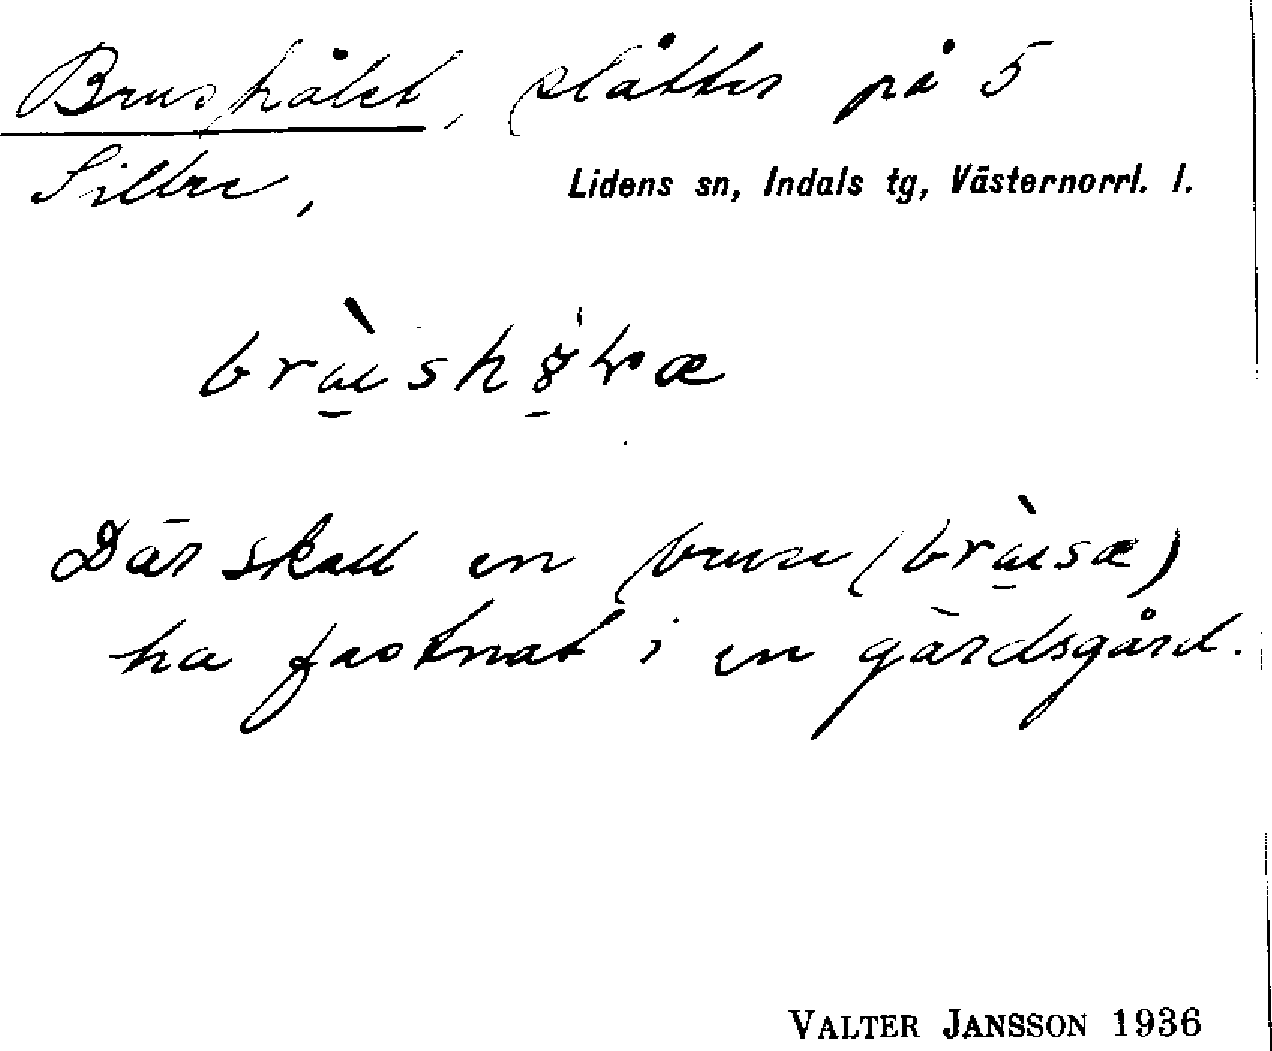 Brushålet, slåtter på 5
Sillre,
Lidens sn, Indals tg, Västernorrl. l.
Där skall en bruse (
ha fastnat i en gärdsgård.
VALTER JANSSON 1936